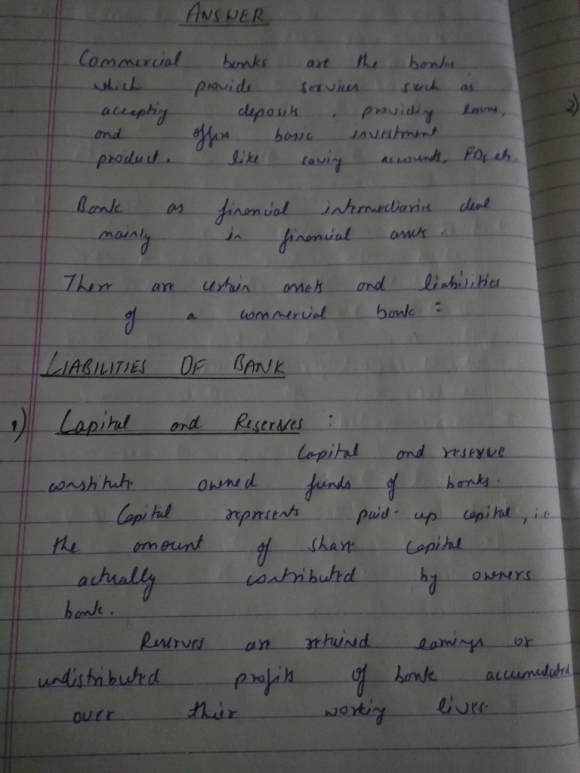 ANSWER
Commercial banks are the banks
which provide services such as
accepting deposits, providing loans,
and offers basic investment
product. like saving accounts, FDs etc.
Bank as financial intermediaries deal
mainly in financial assets.
There are certain assets and liabilities
of a commercial bank :
LIABILITIES OF BANK
1) Capital and Reserves :
Capital and reserve
constitute owned funds of banks.
Capital represents paid-up capital, i.e
the amount of share capital
actually contributed by owners
bank.
Reserves are retained earnings or
undistributed profits of bank accumulated
over their working lives.
2)